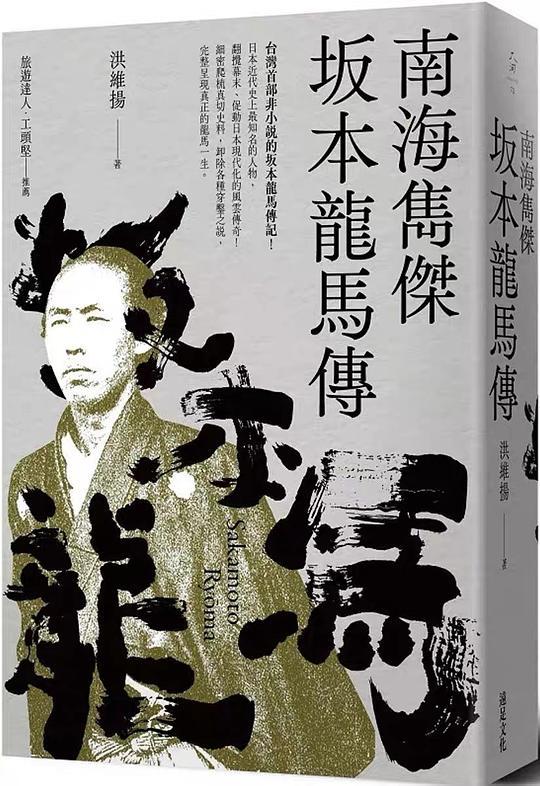 南海雋傑
坂本龍馬傳
台灣首部非小說的坂本龍馬傳記！
日本近代史上最知名的人物，
翻攪幕末、促動日本現代化的風雲傳奇！
細密爬梳真切史料，卸除各種穿鑿之說，
完整呈現真正的龍馬一生。
洪維揚 著
旅遊達人．工頭堅 推薦
坂本龍馬
Sakamoto
Ryoma
南海雋傑
坂本龍馬傳
洪維揚 著
遠足文化